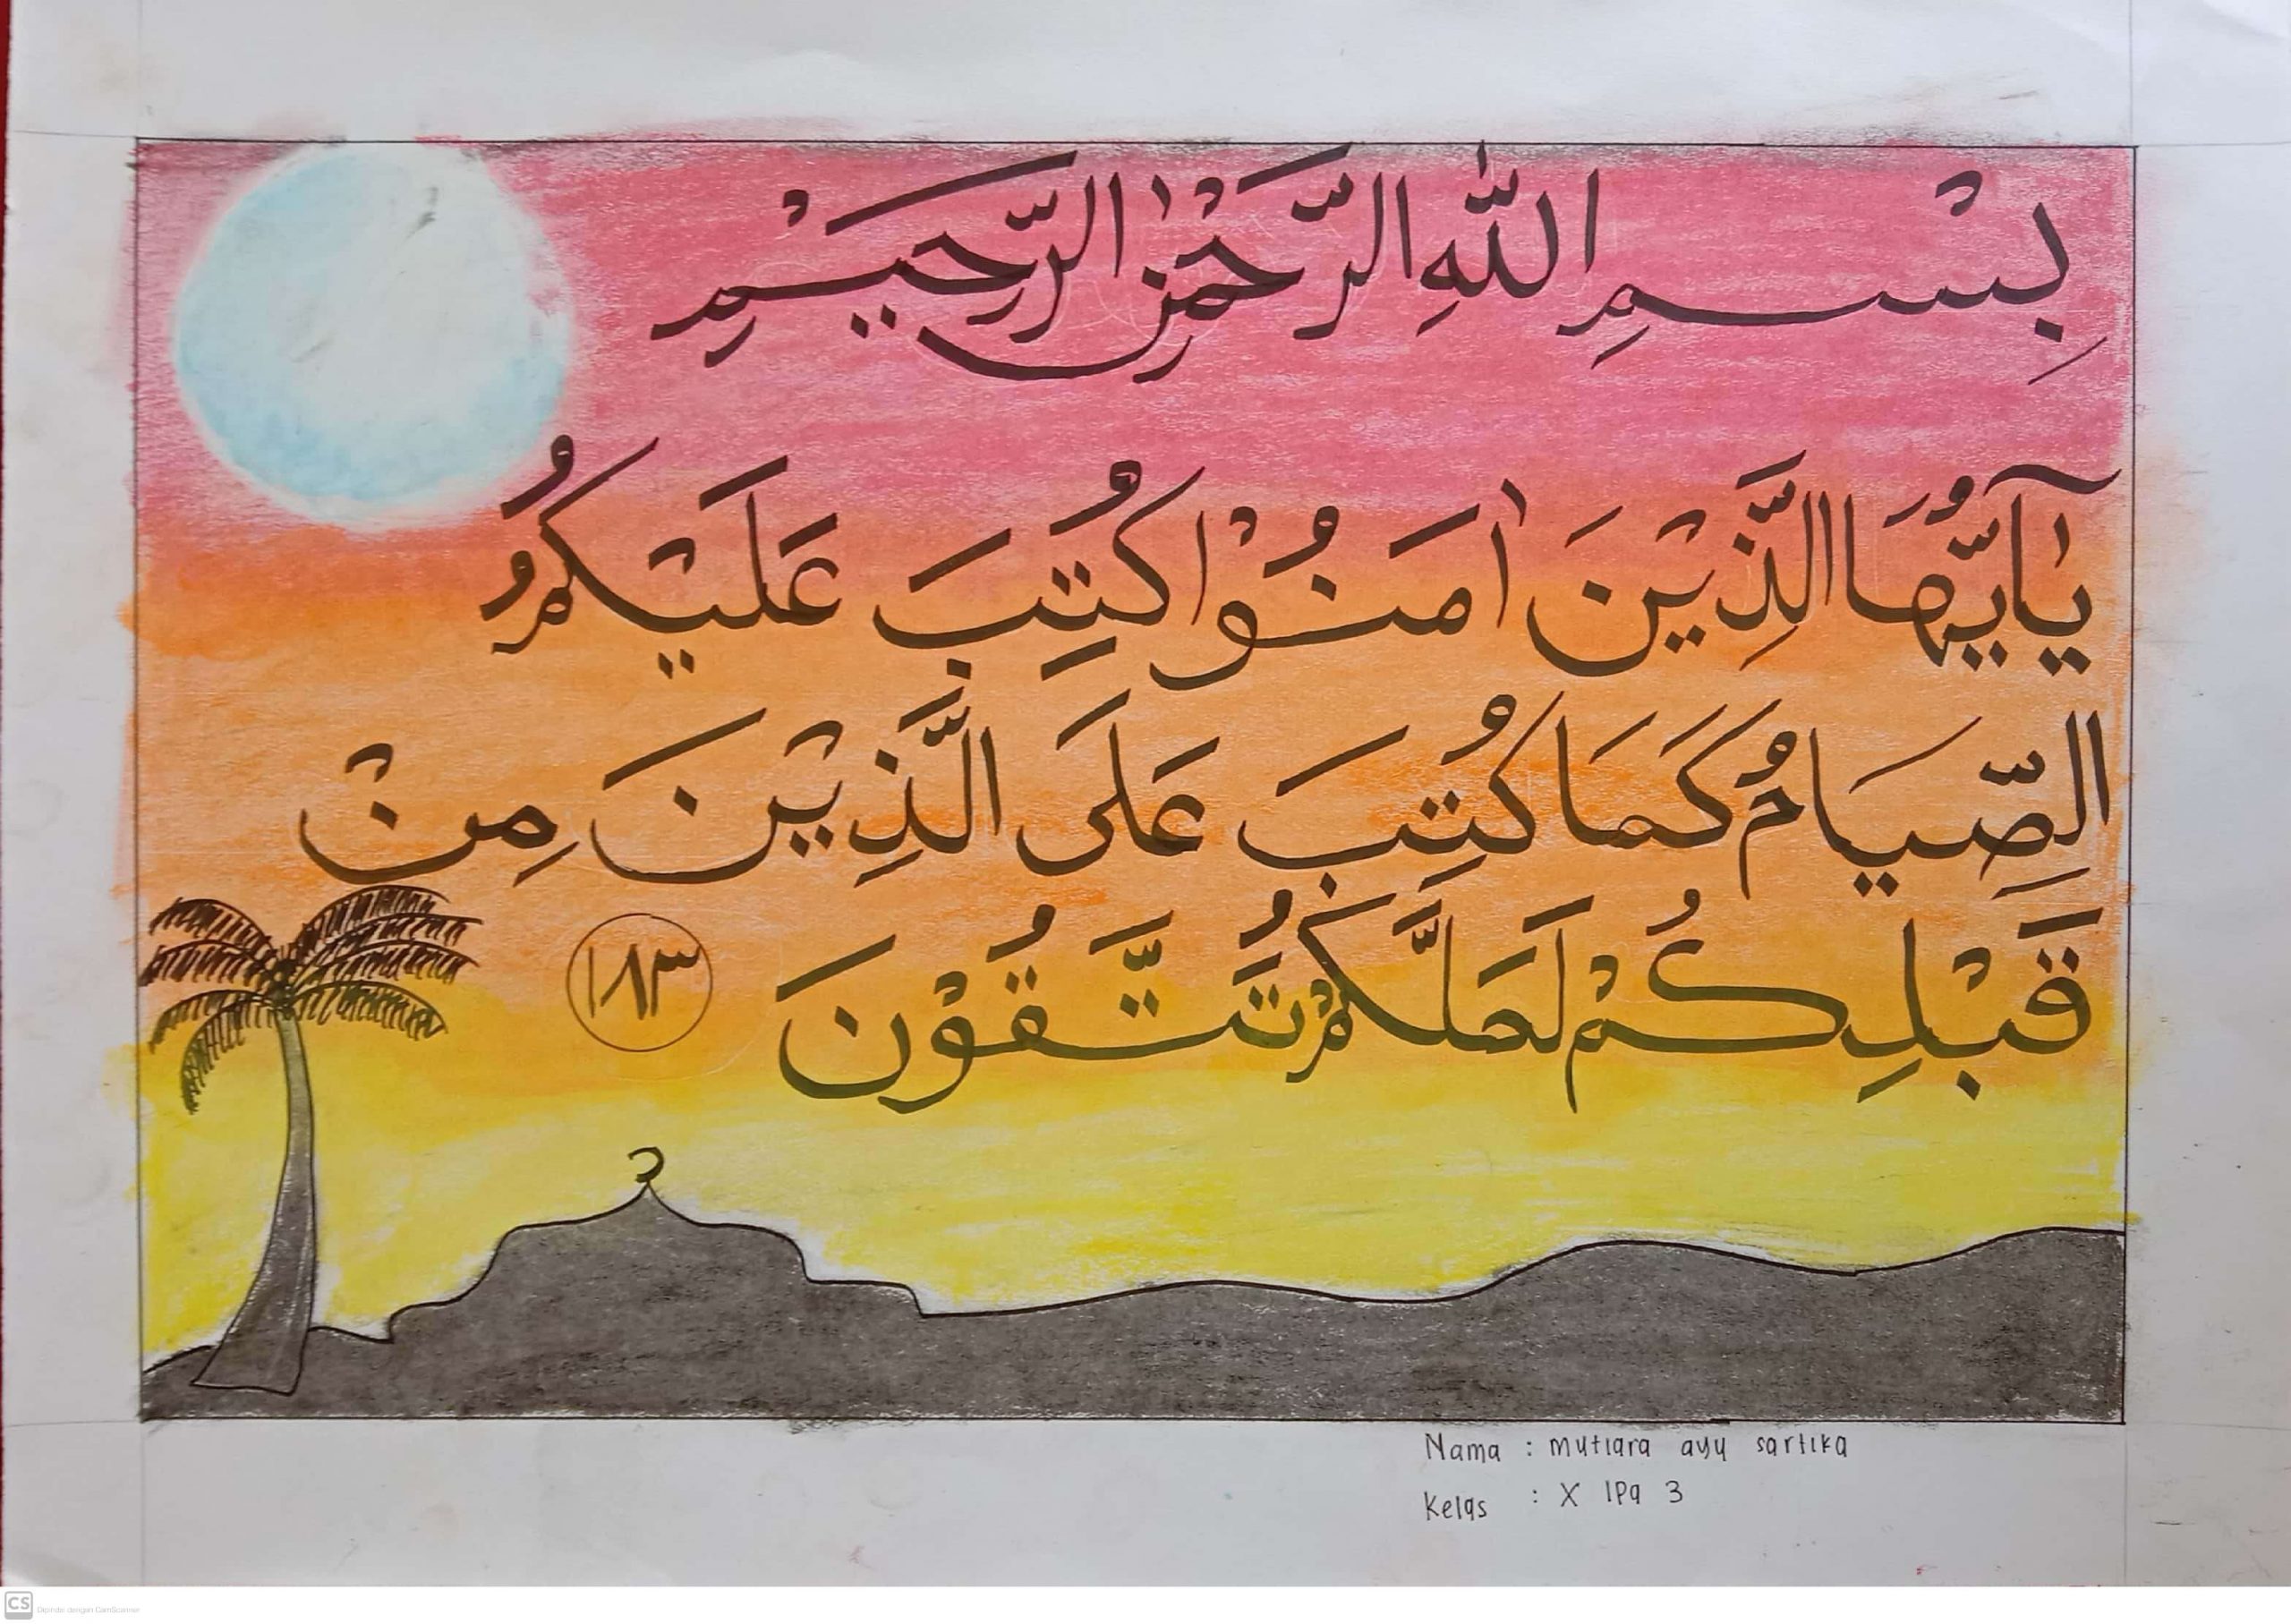 بِسْمِ اللّٰهِ الرَّحْمٰنِ الرَّحِيْمِ
يٰٓاَيُّهَا الَّذِيْنَ اٰمَنُوْا كُتِبَ عَلَيْكُمُ
الصِّيَامُ كَمَا كُتِبَ عَلَى الَّذِيْنَ مِنْ
قَبْلِكُمْ لَعَلَّكُمْ تَتَّقُوْنَ ١٨٣
Nama : mutiara ayu sartika
Kelas : X IPa 3
CS Dipindai dengan CamScanner